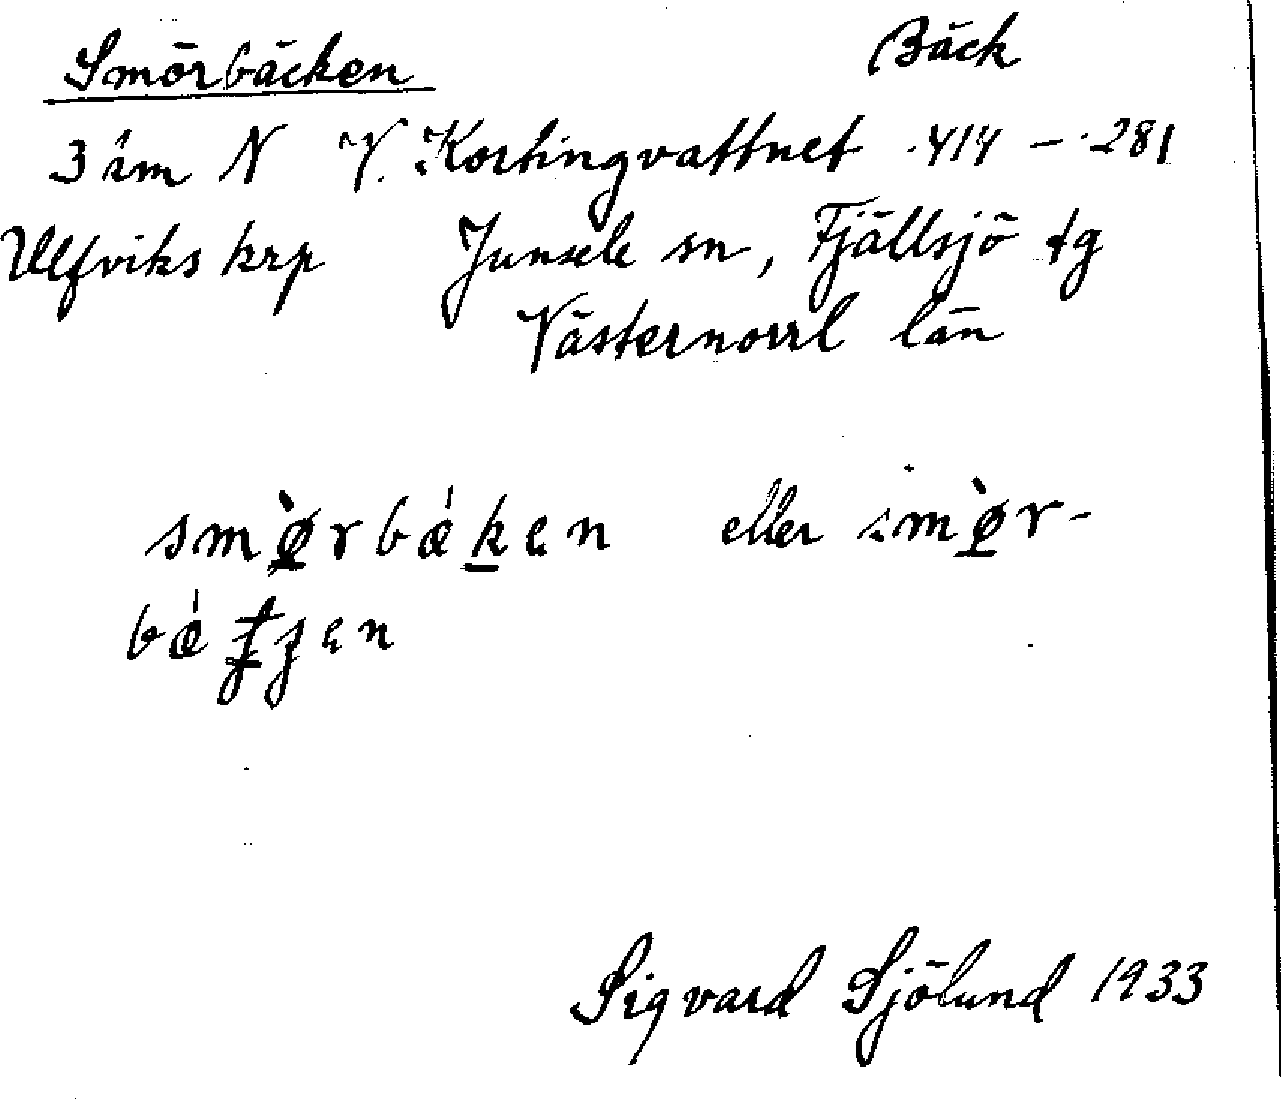 Smörbäcken Bäck
3 km N V. Kortingvattnet 414 – 281
Ulfviks krp Junsele sn, Fjällsjö tg
Västernorrl län
smø̀rbǽken eller smø̀r-
bǽ
Sigvard Sjölund 1933